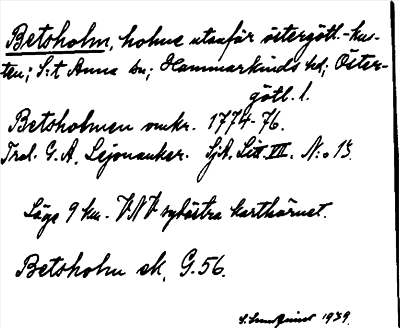 Betsholm, holme utanför östergötl.-kus-
ten; S:t Anna sn; Hammarkinds hd; Öster-
götl. l.
Betsholmen omkr. 1774-76.
Trol. G. A. Lejonanker. SjK. Litt. VII. N:o 13.
Läge 9 km. VNV sydöstra karthörnet.
Betsholm ek. G. 56.
1939